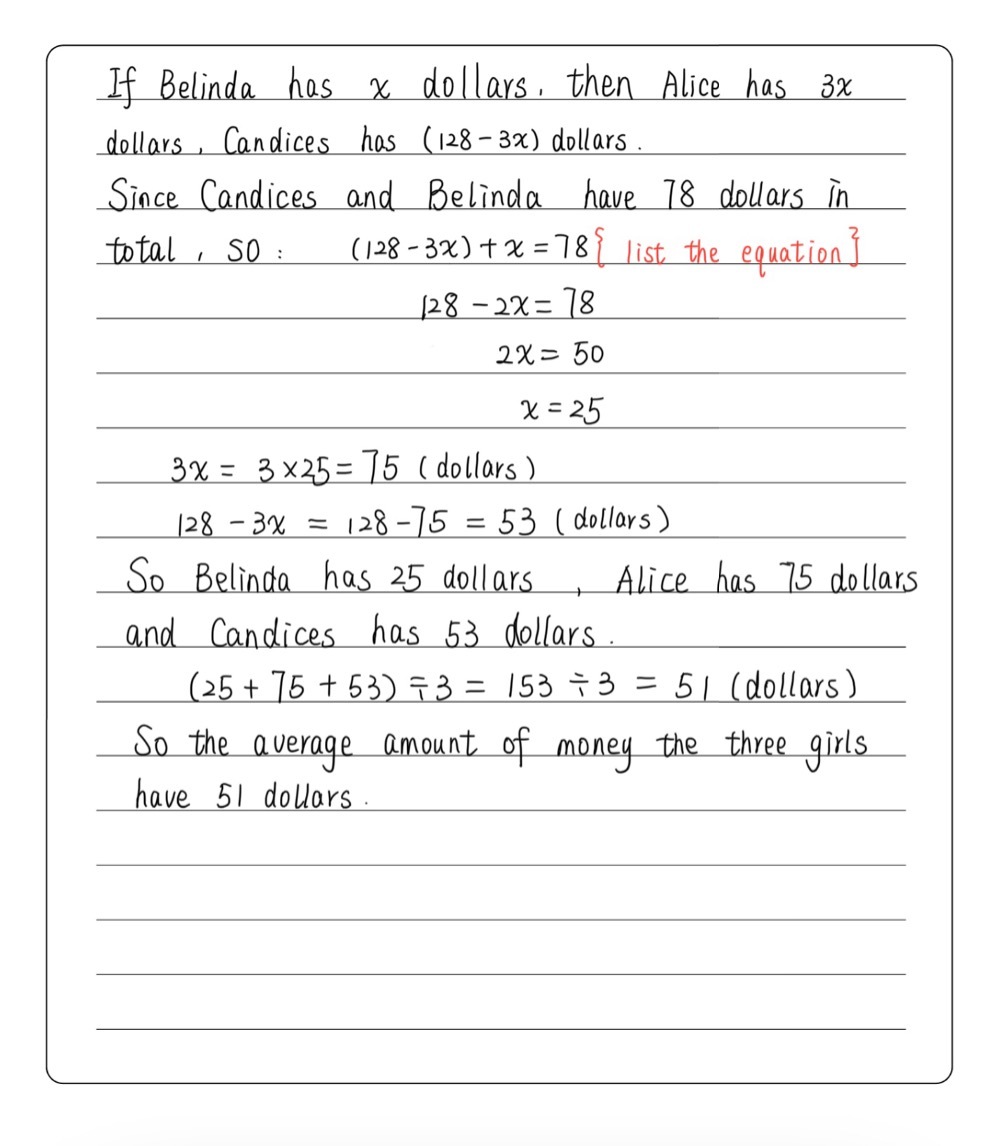 If Belinda has x dollars, then Alice has 3x
dollars, Candices has (128-3x) dollars.
Since Candices and Belinda have 78 dollars in
total, so: (128-3x)+x=78{ list the equation}
128-2x=78
2x=50
x=25
3x = 3×25=75 (dollars)
128-3x = 128-75 = 53 (dollars)
So Belinda has 25 dollars , Alice has 75 dollars
and Candices has 53 dollars.
(25+75+53)÷3 = 153÷3 = 51 (dollars)
So the average amount of money the three girls
have 51 dollars.